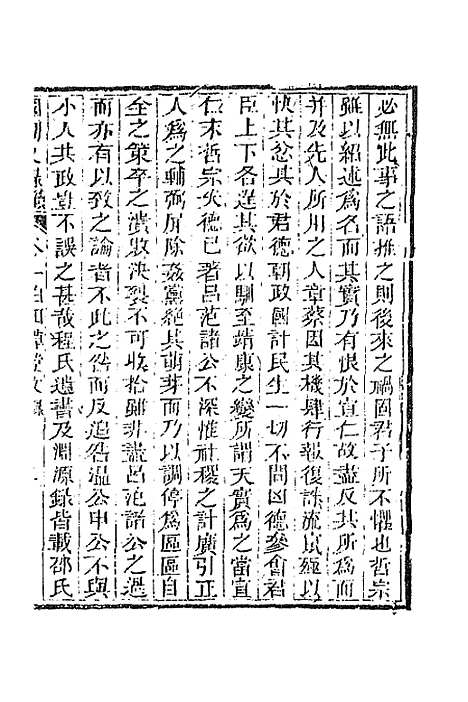 必無此事之語推之則後來之禍固君子所不懼也哲宗
雖以紹述爲名而其實乃有恨於宣仁故盡反其所爲而
并及先人所用之人章蔡因其機肆行報復誅流貶竄以
快其忿其於君德朝政國計民生一切不問凶德參會君
臣上下各逞其欲以馴至靖康之變所謂天實爲之當宣
仁末哲宗失德已著呂范諸公不深惟社稷之計廣引正
人爲之輔弼屏除姦黨絕其萌芽而乃以調停爲區區自
全之策卒之潰敗決裂不可收拾雖非盡呂范諸公之過
而亦有以致之論者不此之咎而反追咎溫公申公不與
小人共政豈不誤之甚哉程氏遺書及淵源錄皆載邵氏
國朝文錄 卷一 白田草堂文錄